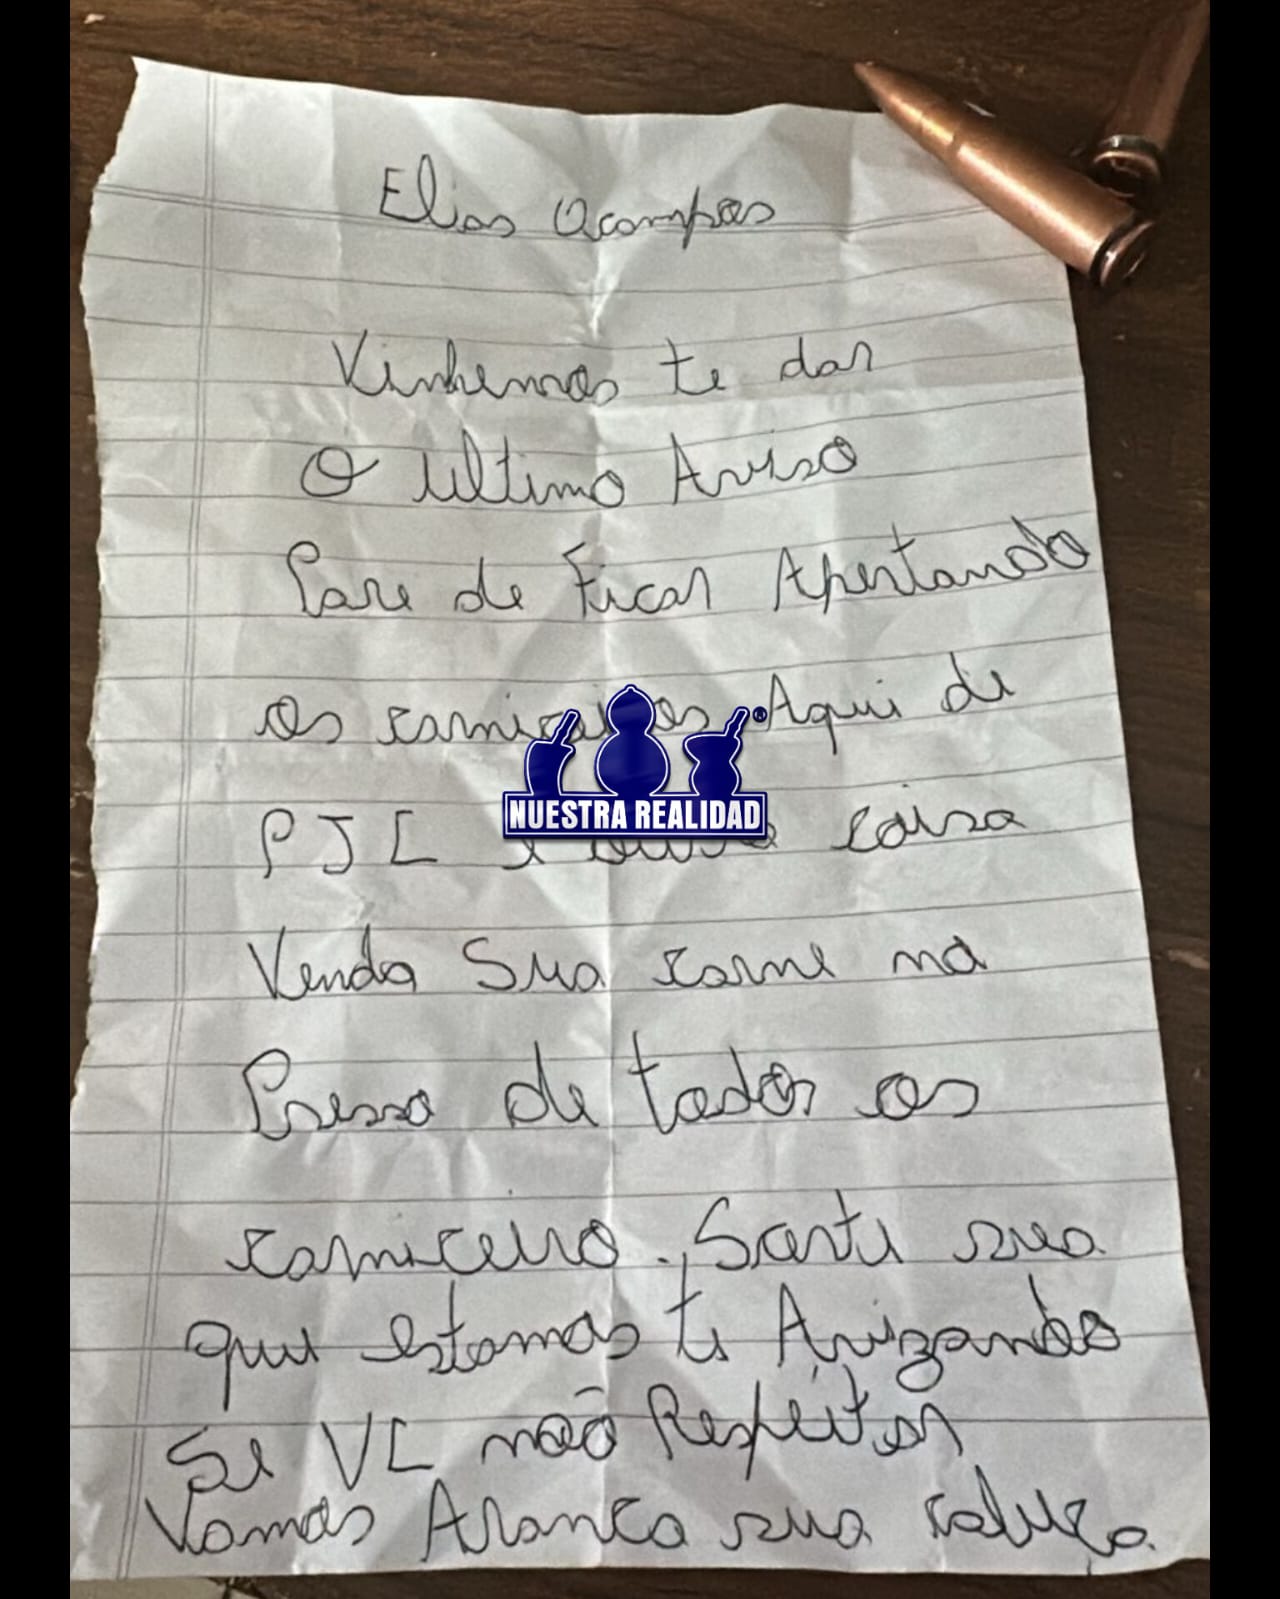 Elias Ocampos
Vinhemos te dar
O ultimo Aviso
Pare de Ficar Apertando
os carniceiros Aqui de
®
NUESTRA REALIDAD
PJC e outra coisa
Venda Sua carne na
Presso de todos os
carniceiro.,Sorte sua
que estamos te Avizando
Se VC não Respeitar
Vamos Aranca sua cabeça.